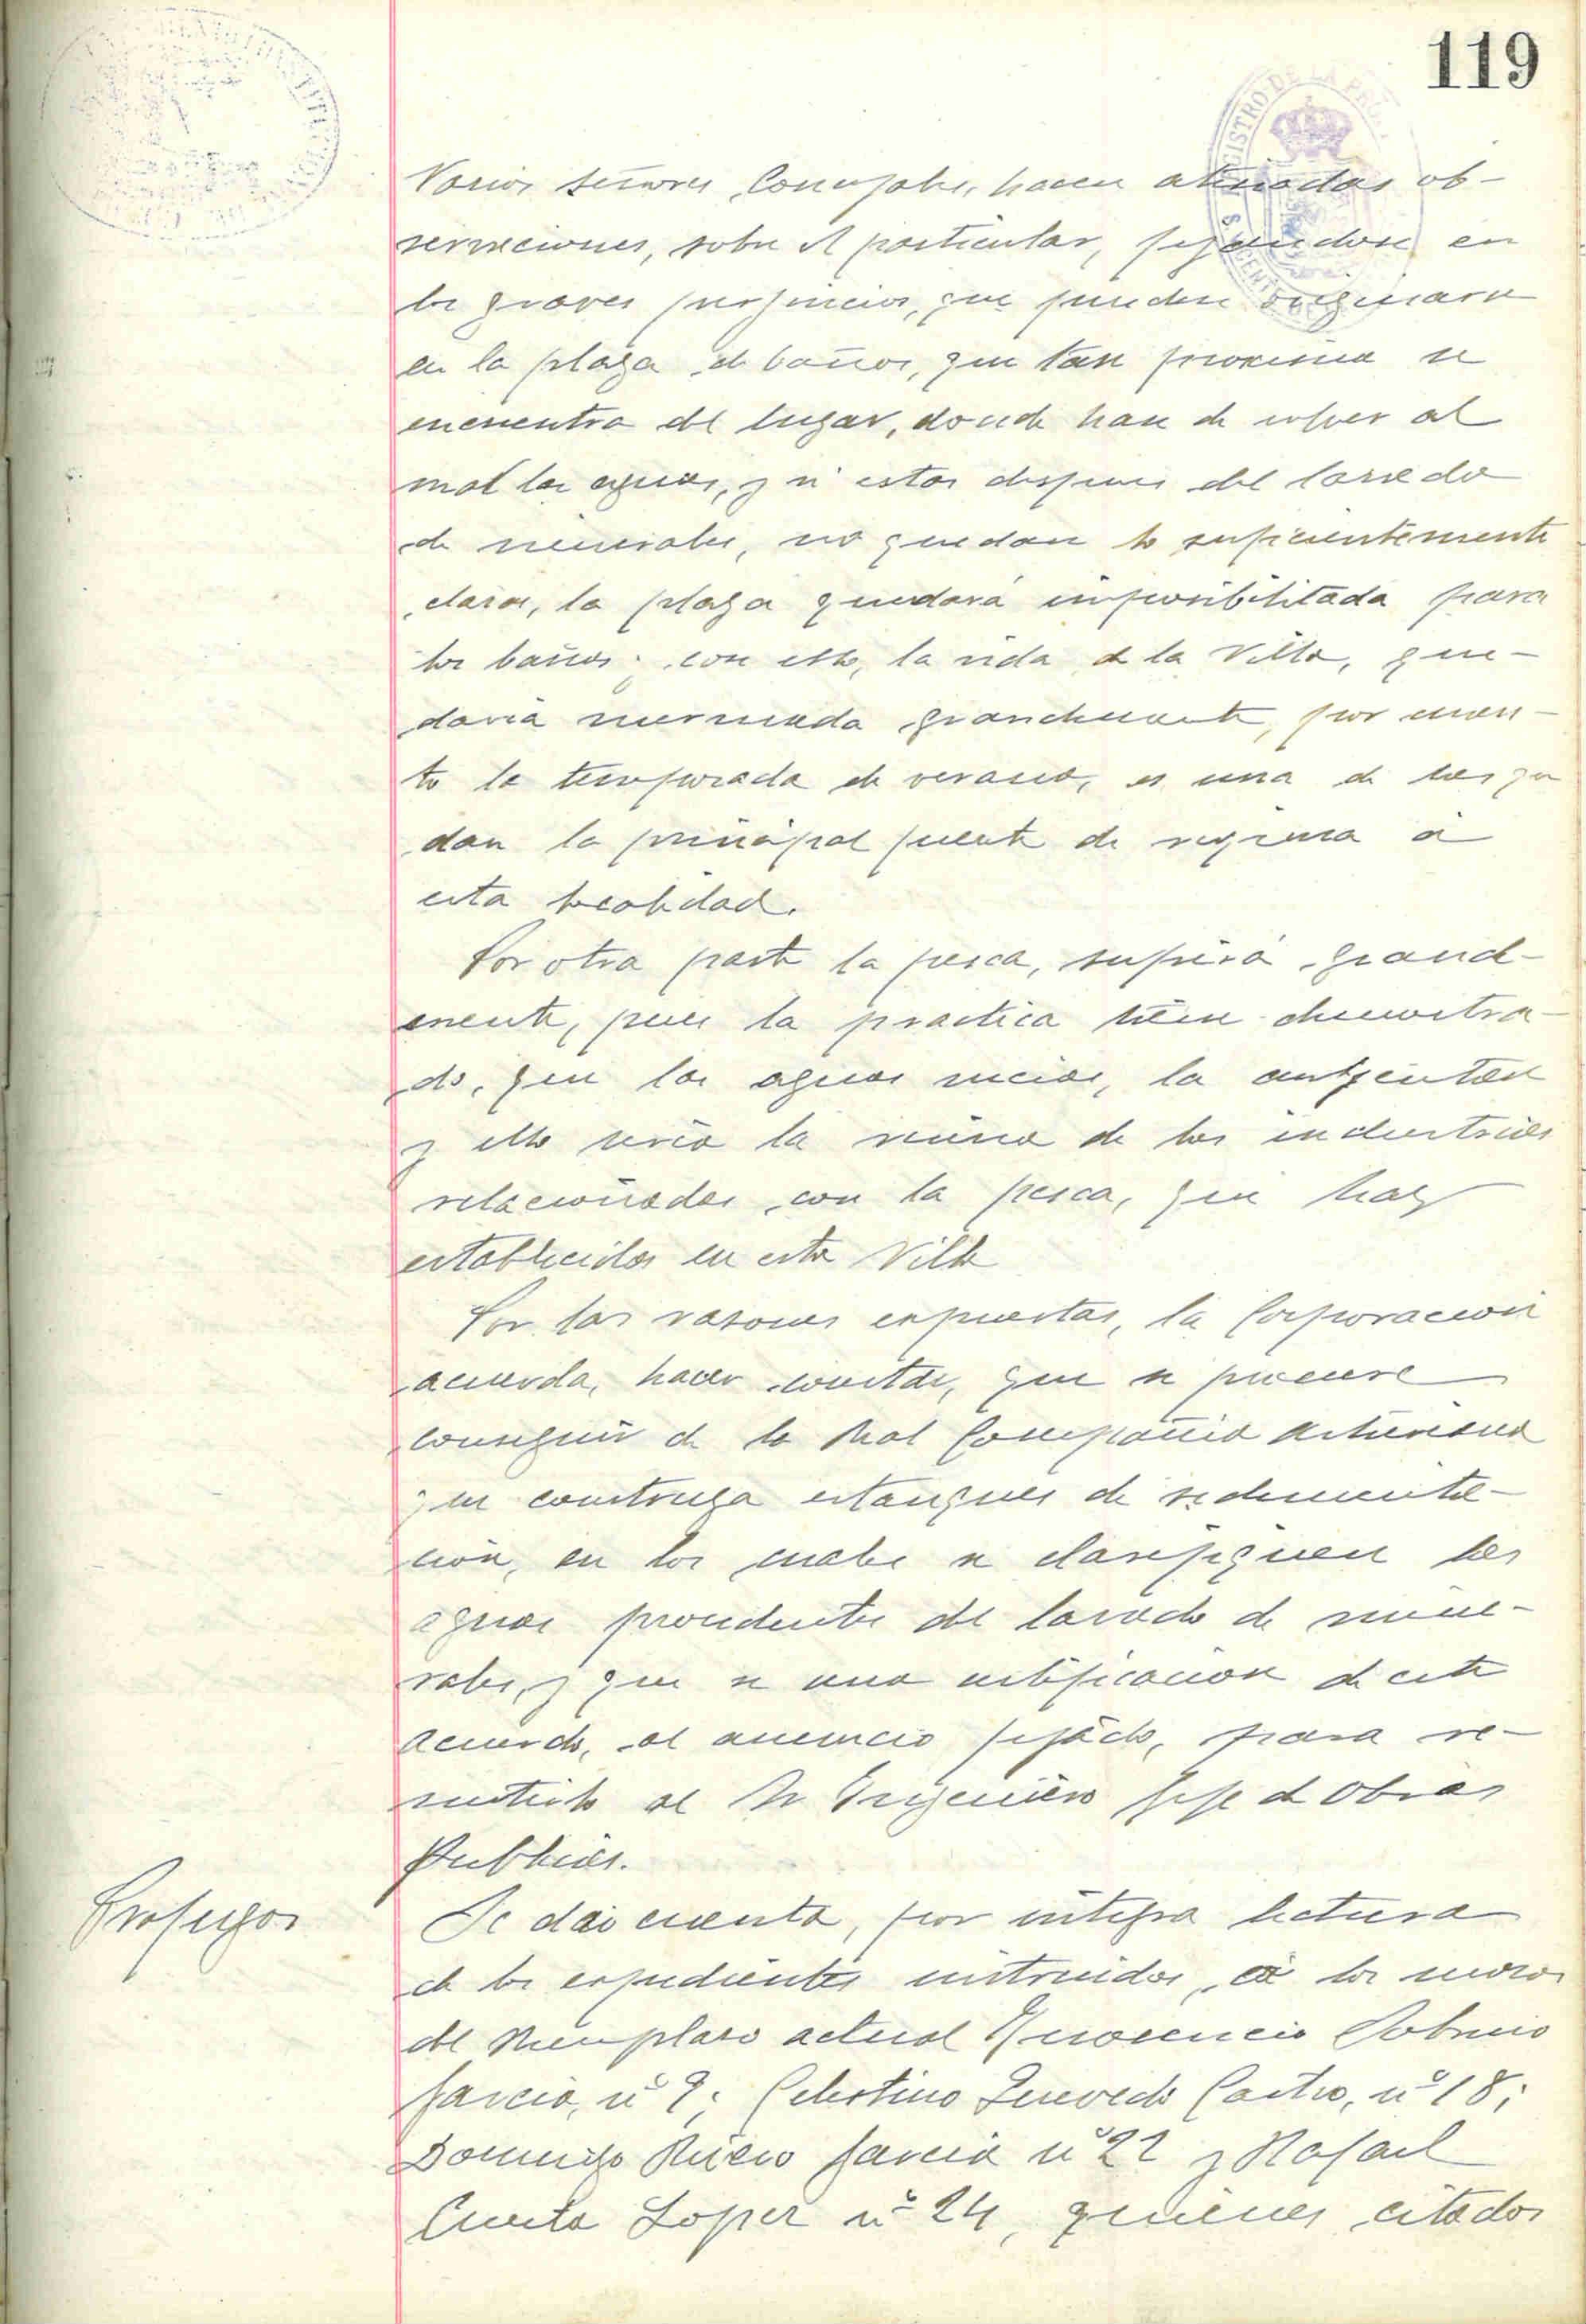 119
Varios señores Concejales, hacen atinadas ob-
servaciones, sobre el particular, fijandose en
los graves perjuicios, que pueden originarse
en la playa de baños, que tan proxima se
encuentra del lugar, donde han de volver al
mar las aguas, y si estas despues del lavado
de minerales, no quedan lo suficientemente
claras, la playa quedará imposibilitada para
los baños; con esto, la vida de la Villa, que-
daria mermada grandemente, por cuan-
to la temporada de verano, es una de las que
dan la principal fuente de riqueza á
esta localidad.
Por otra parte la pesca, sufrirá grande-
mente, pues la practica tiene demostra-
do, que las aguas sucias, la ahuyentan
y ello seria la ruina de las industrias
relacionadas con la pesca, que hay
establecidas en esta Villa
Por las razones expuestas, la Corporacion
acuerda, hacer constar, que se procure
conseguir de la Real Compañia Asturiana
que construya estanques de sedimenta-
ción, en los cuales se clarifiquen las
aguas procedentes del lavado de mine-
rales, y que se una certificacion de este
acuerdo, al anuncio fijado, para re-
mitirlo al Sr Ingeniero Jefe de Obras
Publicas.
Profugos
Se dá cuenta, por integra lectura
de los expedientes instruidos, á los mozos
del Reemplazo actual Inocencio Sobrino
Garcia, nº 9; Celestino Quevedo Castro, nº 18;
Domingo Rucio Garcia nº 22 y Rafael
Cueto Lopez nº 24, quienes citados